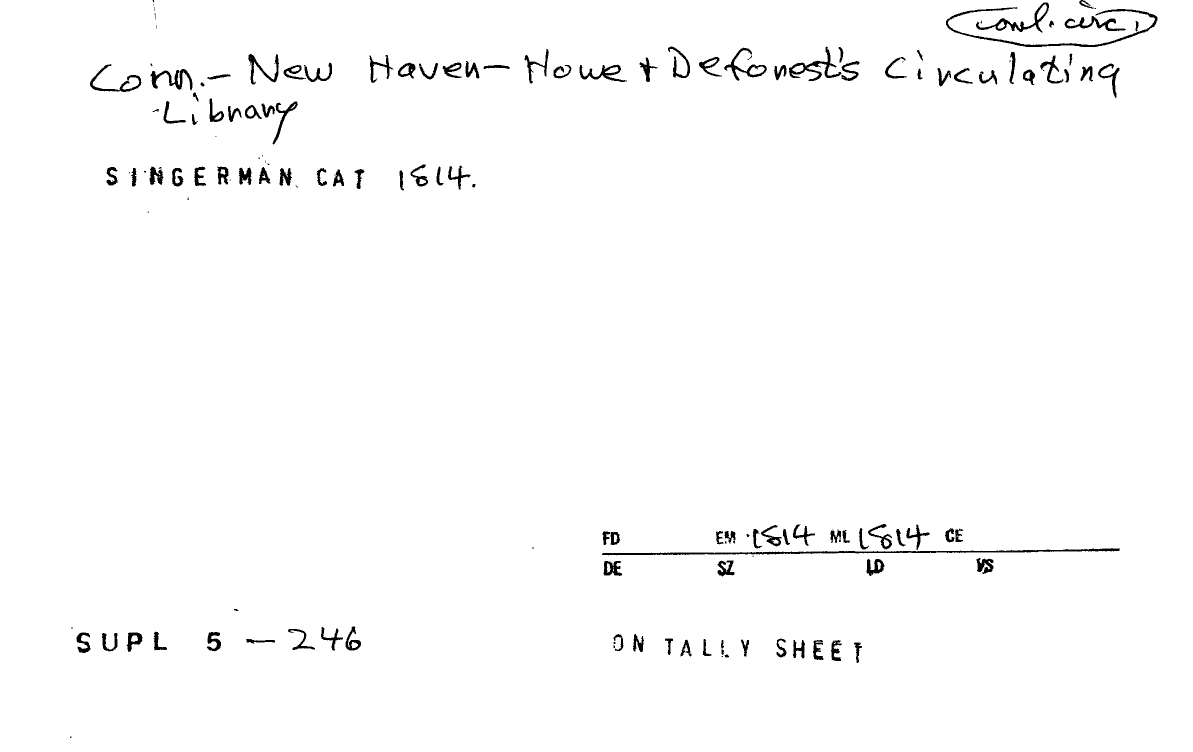 coml. circ
Conn.- New Haven- Howe + Deforest's Circulating
Library
SINGERMAN CAT 1814.
FD EM 1814 ML 1814 CE
DE SZ LD VS
SUPL 5 - 246
ON TALLY SHEET